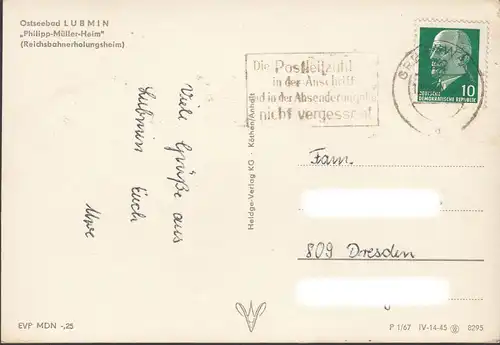 Ostseebad LUBMIN
„Philipp-Müller-Heim"
(Reichsbahnerholungsheim)
Die Postleitzahl
in der Anschrift
und in der Absenderangabe
nicht vergessen!
DEUTSCHE
DEMOKRATISCHE REPUBLIK
10
Viele Grüße aus
Lubmin Euch
Uwe
Heldge-Verlag KG · Köthen/Anhalt
Fam.
809 Dresden
EVP MDN -,25
P 1/67 IV-14-45 8295